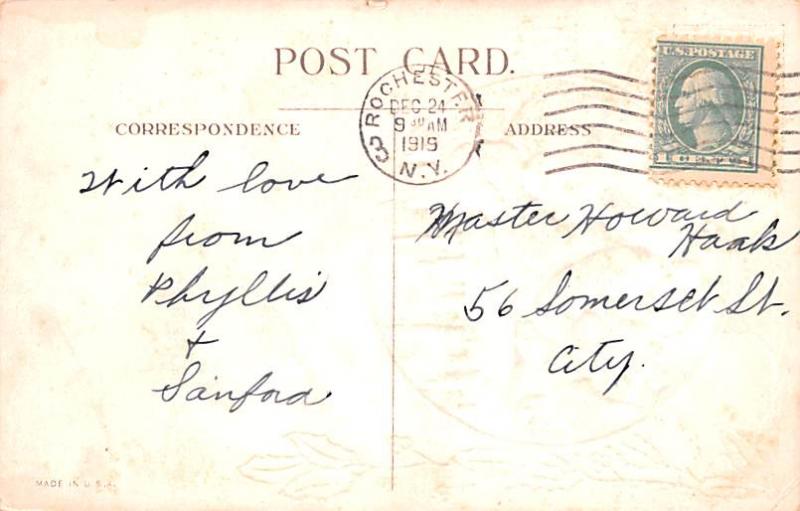 POST CARD.
CORRESPONDENCE
ADDRESS
ROCHESTER
DEC 24
9 30 AM
1919
N.Y.
3
U.S. POSTAGE
1 CENT
With love
from
Phyllis
+
Sanford
Master Howard
Haak
56 Somerset St.
City.
MADE IN U.S.A.